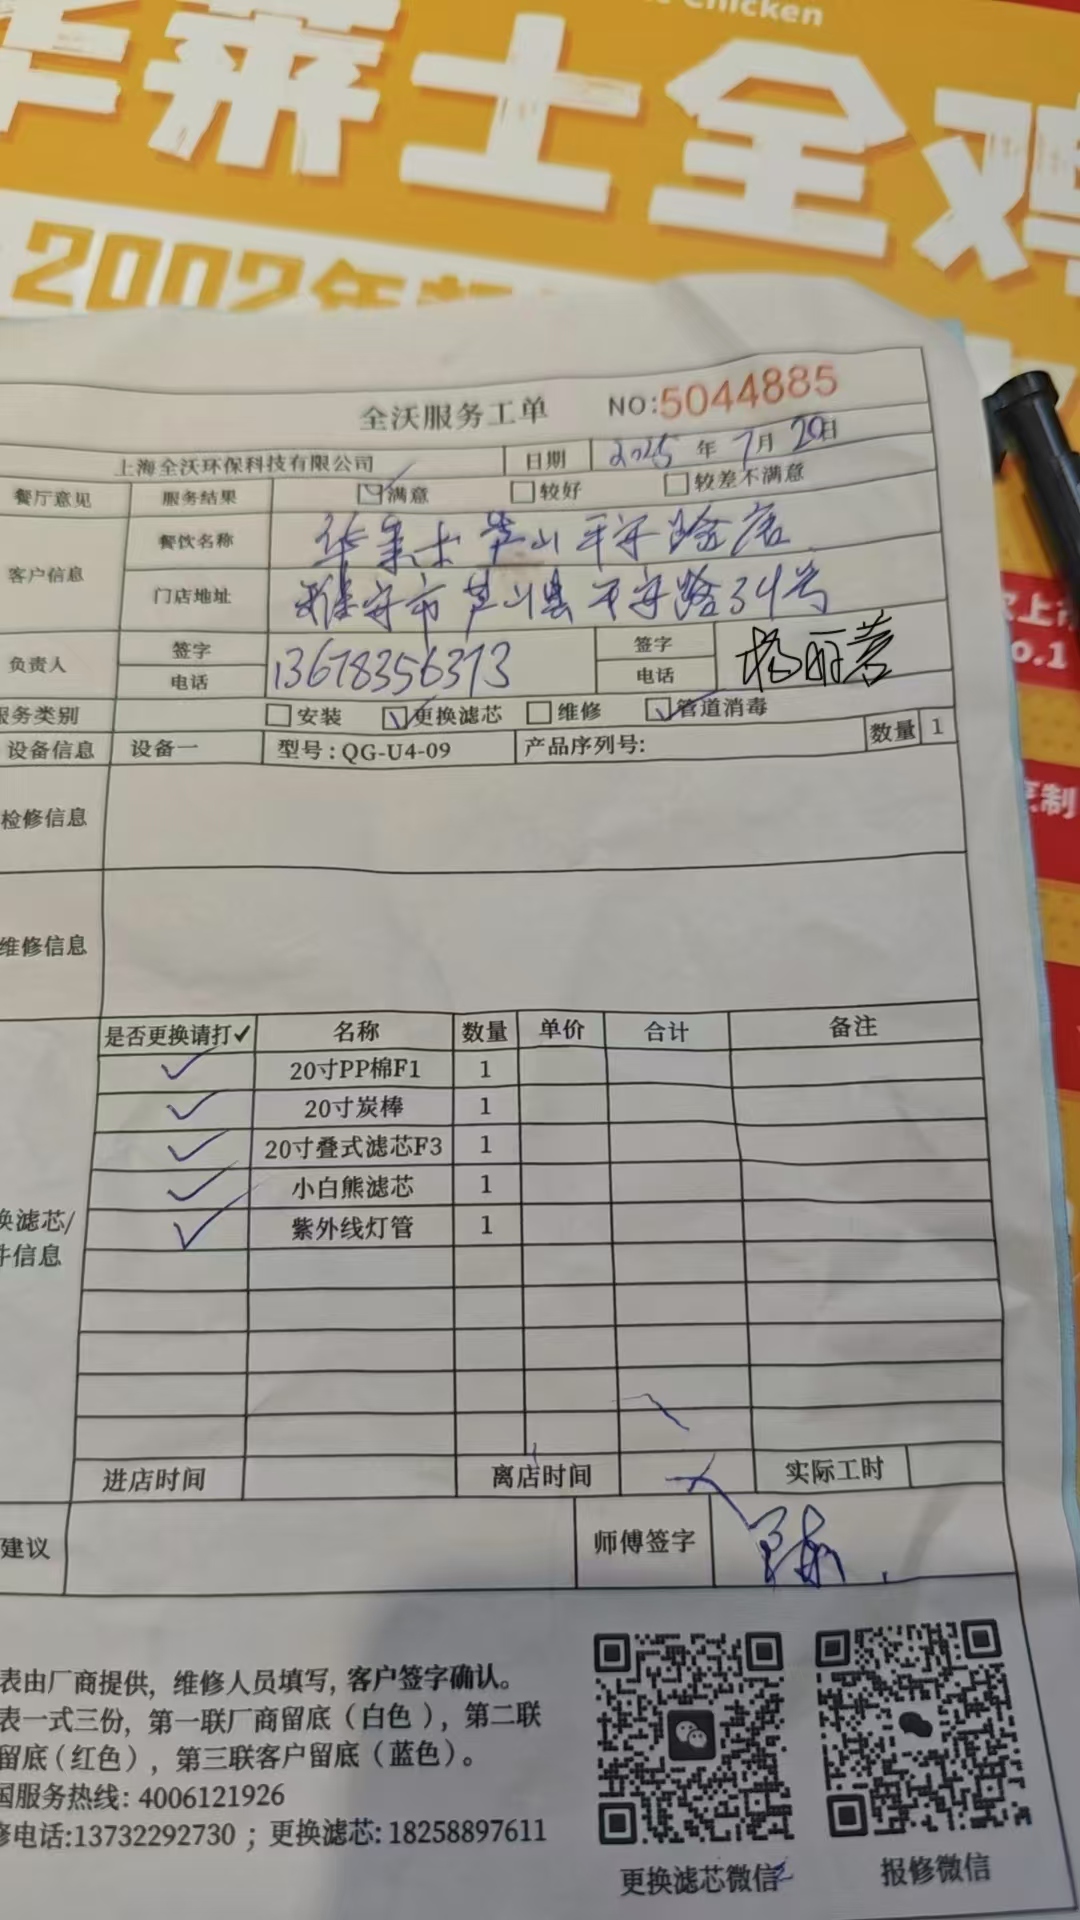 Chicken
华莱士全鸡
2002年
全沃服务工单 NO:5044885
上海全沃环保科技有限公司 日期 2025年7月20日
餐厅意见 服务结果 满意 较好 较差不满意
客户信息 餐饮名称 华莱士芦山平安路店
门店地址 雅安市芦山县平安路34号
负责人 签字 签字
电话 13678356373 电话
服务类别 安装 更换滤芯 维修 管道消毒
设备信息 设备一 型号:QG-U4-09 产品序列号: 数量 1
检修信息
维修信息
是否更换请打✓ 名称 数量 单价 合计 备注
✓ 20寸PP棉F1 1
✓ 20寸炭棒 1
✓ 20寸叠式滤芯F3 1
✓ 小白熊滤芯 1
✓ 紫外线灯管 1
换滤芯/
件信息
进店时间 离店时间 实际工时
建议 师傅签字
表由厂商提供,维修人员填写,客户签字确认。
表一式三份,第一联厂商留底(白色),第二联
留底(红色),第三联客户留底(蓝色)。
国服务热线:4006121926
修电话:13732292730;更换滤芯:18258897611
更换滤芯微信 报修微信